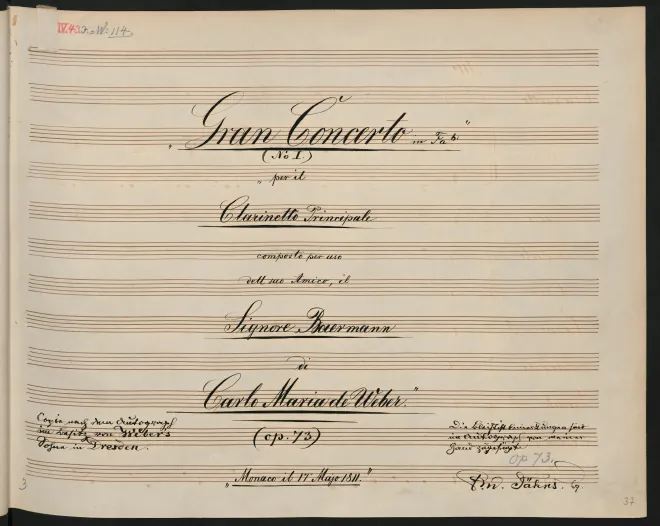 IV.43.2=W: 114.
„Gran Concerto in Fa b."
(No I.)
„ per il
Clarinetto Principale
composto per uso
dell suo Amico, il
Signore Baermann
di
Carlo Maria de Weber."
(op. 73)
„Monaco il 17 Majo 1811."
Copie nach dem Autograph
im Besitz von Weber's
Sohne in Dresden.
Die Bleistiftbemerkungen sind
im Autograph von
Hand zugefügt
op 73.
Jähns.
3
37